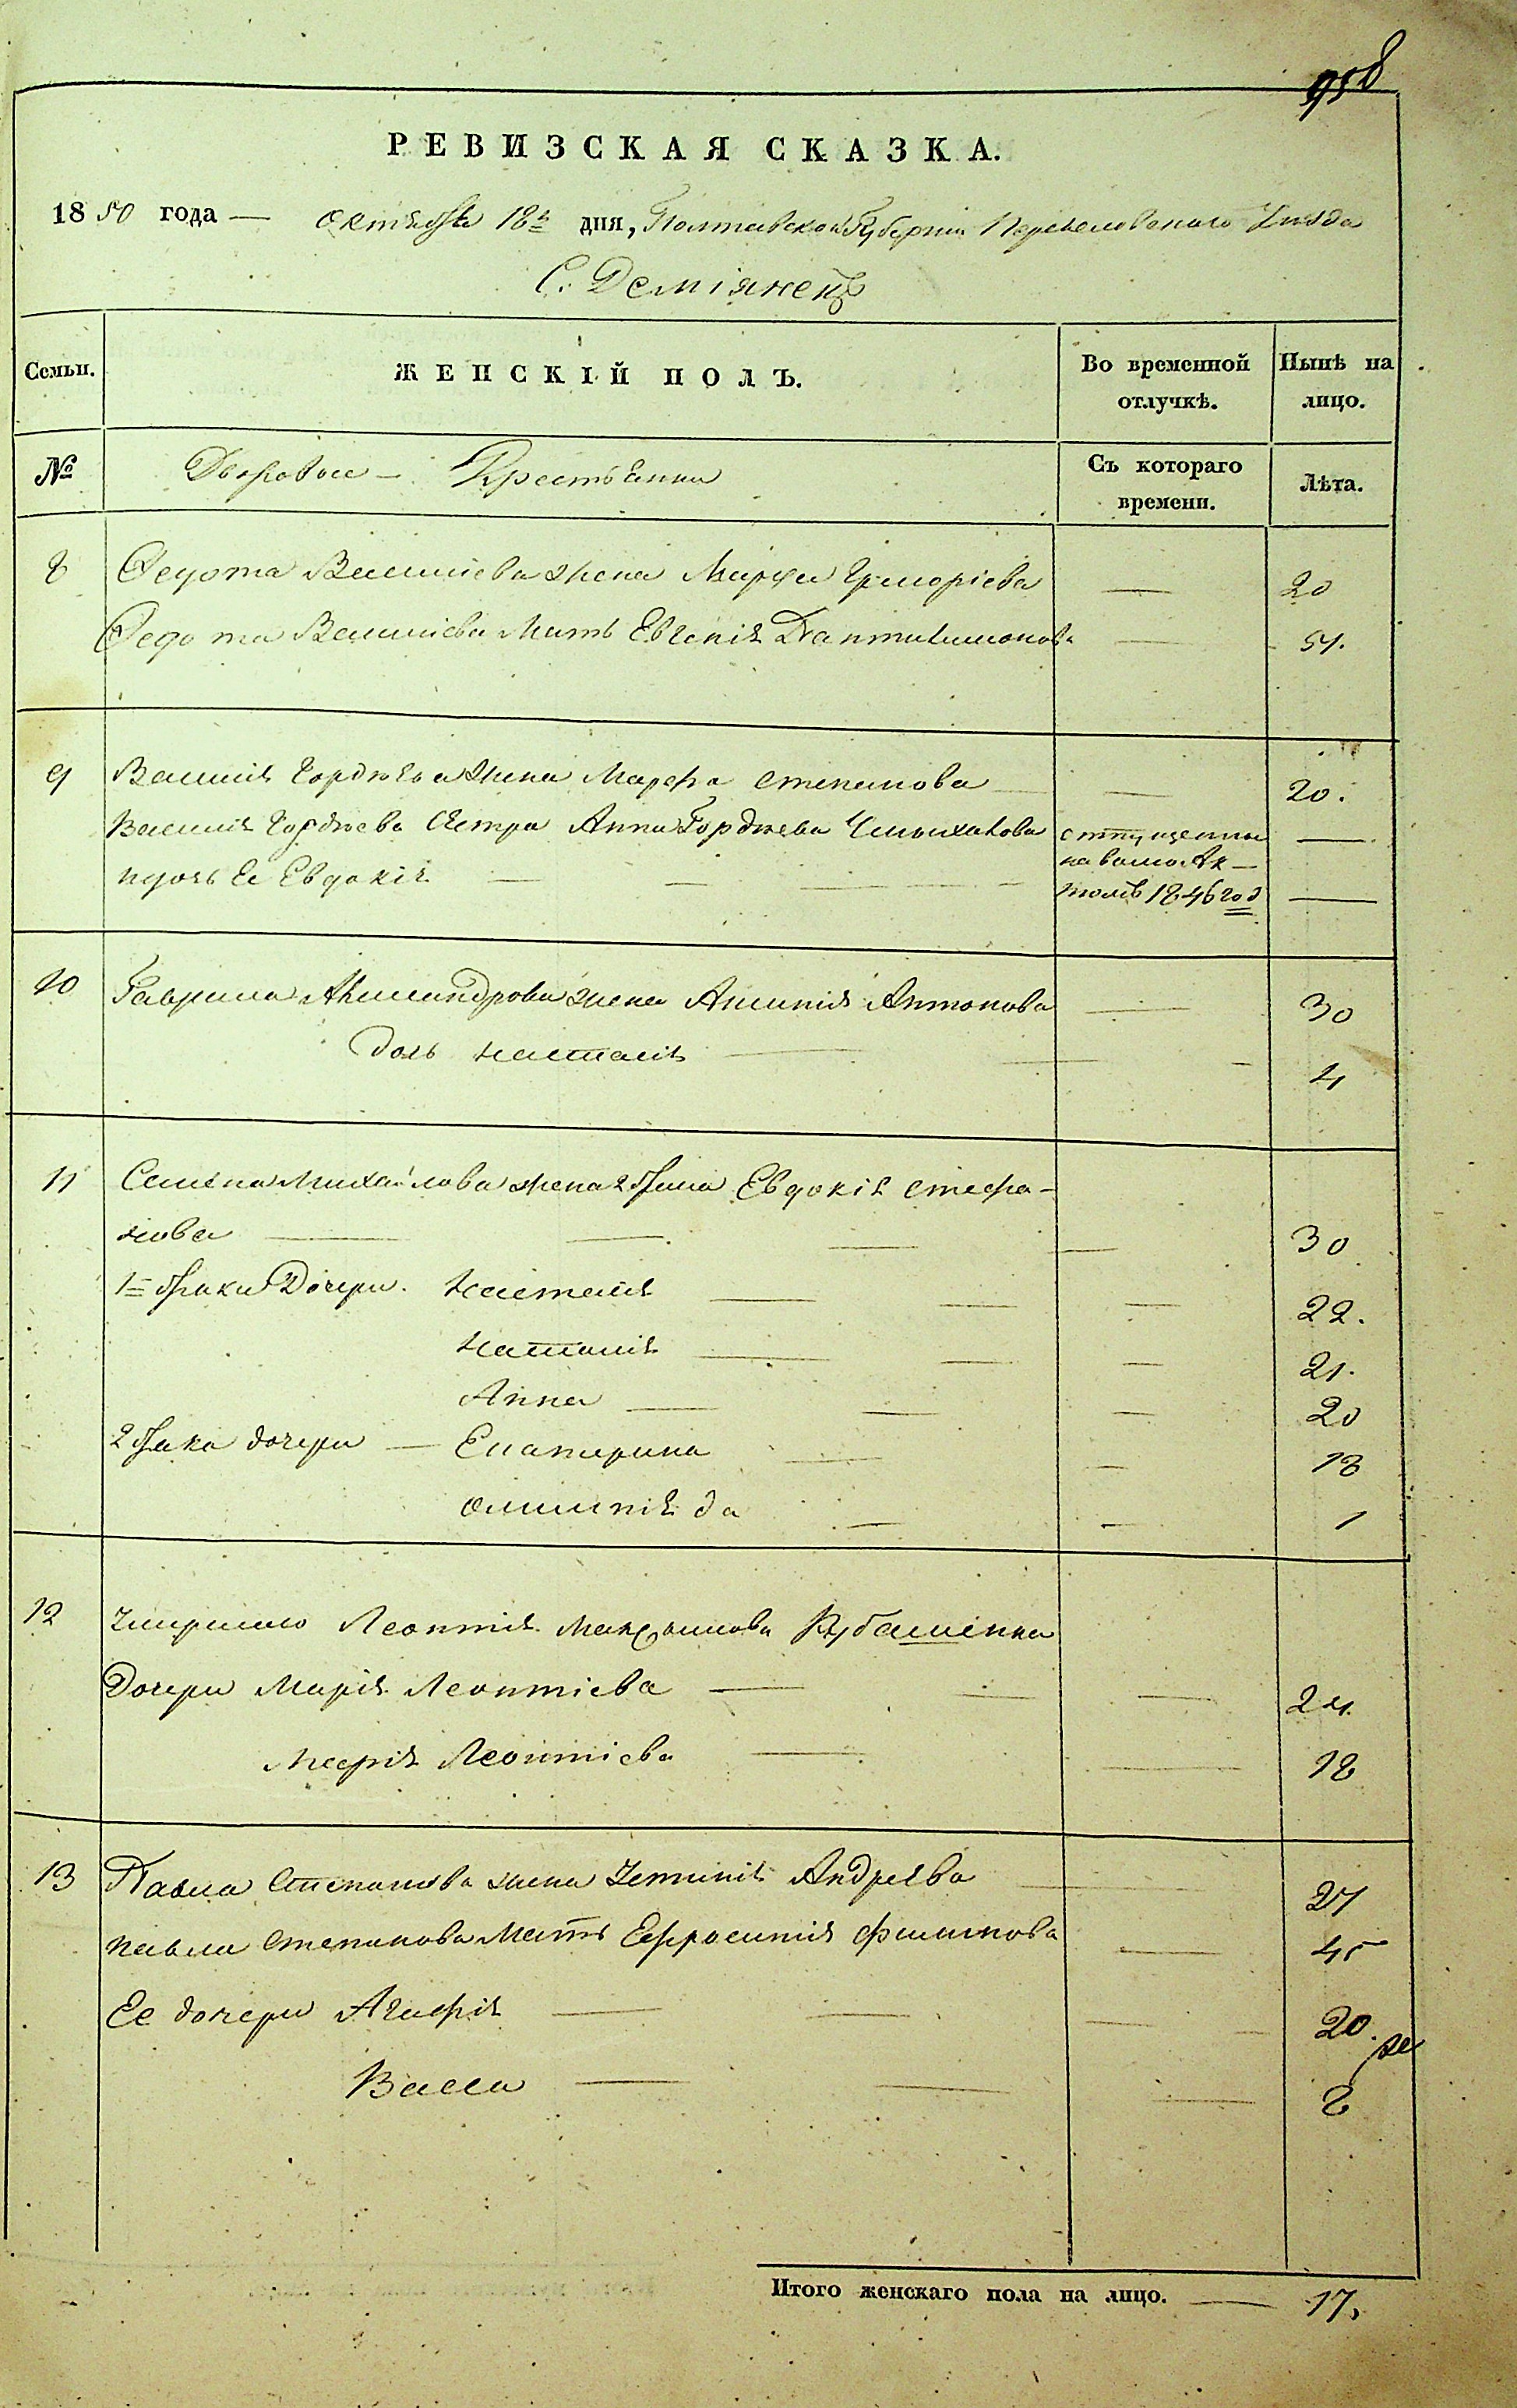 958
РЕВИЗСКАЯ СКАЗКА.
1850 года — Октября 18го дня, Полтавской Губерніи Переяславскаго Уезда
С. Деміянецъ
Семьи.
ЖЕНСКІЙ ПОЛЪ.
Во временной отлучкѣ.
Нынѣ на лицо.
№
Дворовые — Крестьянки
Съ котораго времени.
Лѣта.
8 Федота Василіева жена Марфа Григоріева — 20
Федота Василіева Мать Евгенія Пантилимонова — 54.
9 Василія Гордѣева жена Марфа Степанова — 20.
Василія Гордѣева Сестра Анна Гордѣева отпущенны —
на волю
идочь Ее Евдокія — — — 1846 год —
10 Гаврила Александрова жена Анна Антонова — 30
дочь Наталія — — — 4
11 Семена Михайлова жена 2 брака Евдокія Стефа-
нова — — — — 30
1го брака Дочери. Настасія — — — 22.
Наталія — — — 21.
Анна — — — 20
2 брака дочери — Екатерина — — 13
да — — 1
12 Умершаго Леонтія Максимова
Дочери Марія Леонтіева — — — 24.
Марія Леонтіева — — 18
13 Павла Степанова жена Андреева — 27
Павла Степанова Мать Ефросинія Филипова — 45
Ее дочери Агафія — — — 20.
Васса — — — 8
Итого женскаго пола на лицо. — 17,